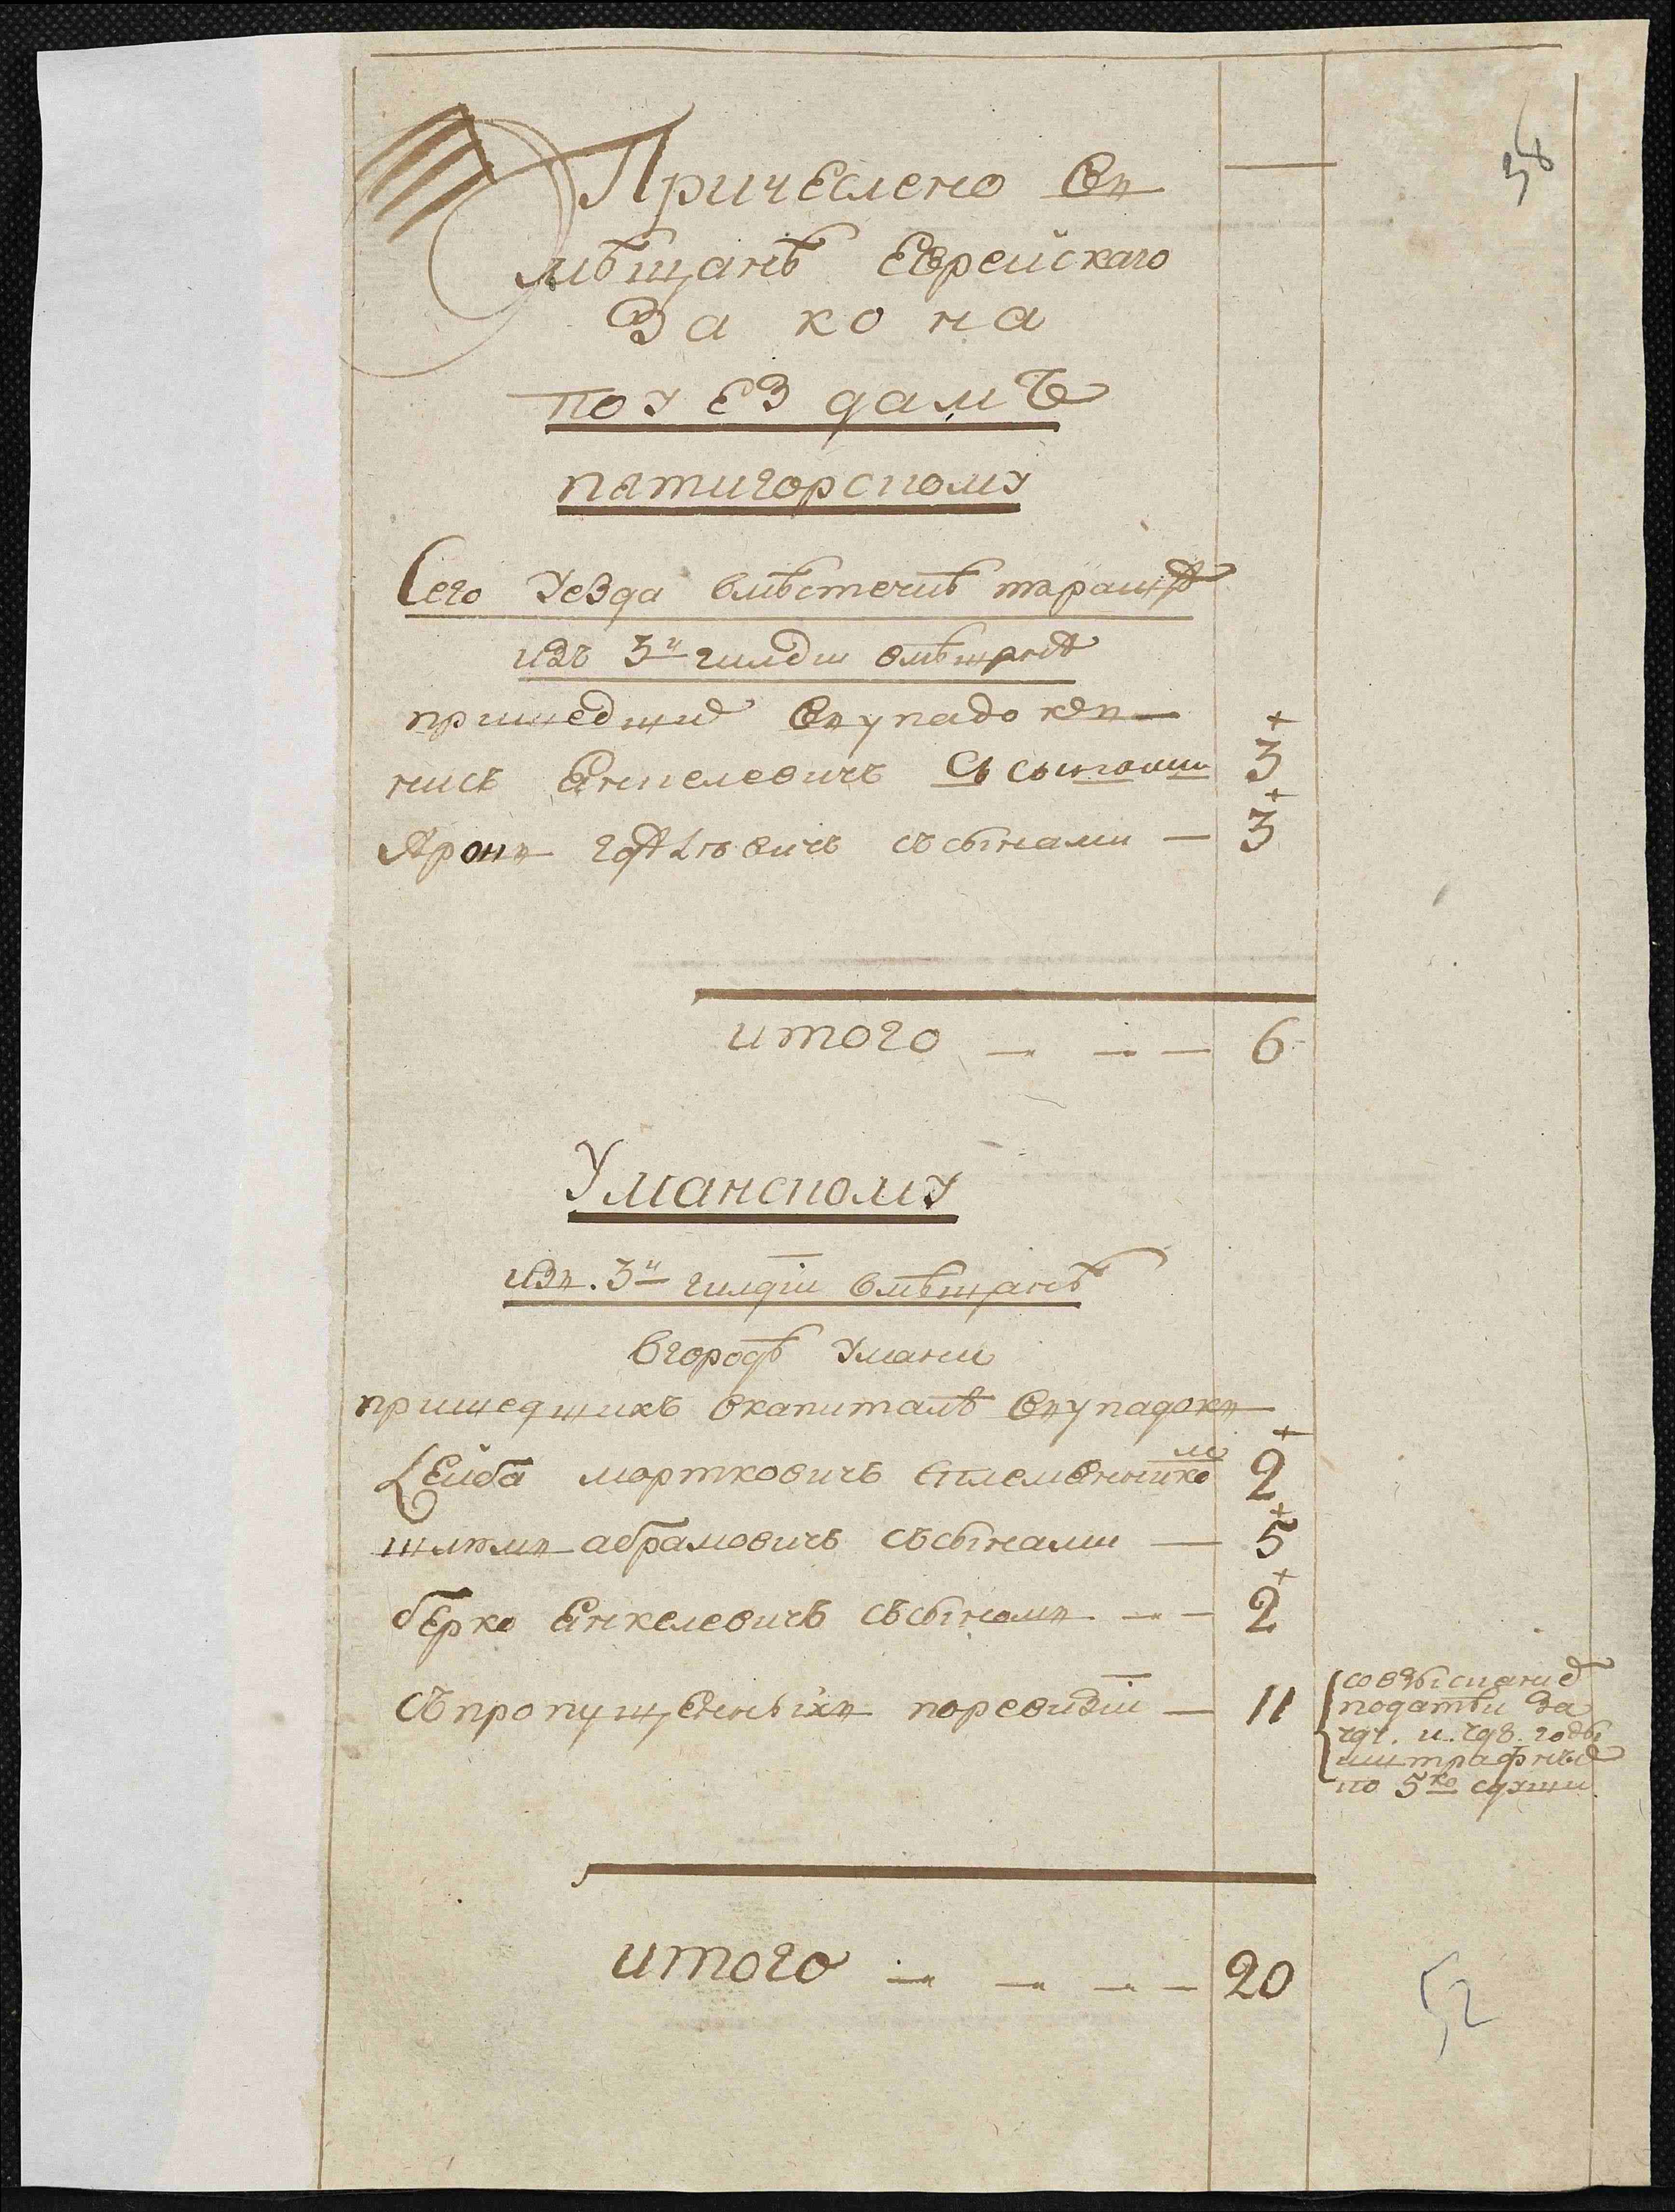 Причеслено Въ
мѣщанѣ Еврейскаго
Закона
по уЕздамъ
пятигорскому
Сего Уезда вмѣстечкѣ таращѣ
изъ 3й гилдии вмѣщанѣ
пришедшие Въ упадокъ
нисъ Енкелевичъ съ сынами 3
Аронъ съ сынами — 3
итого — — — 6
Уманскому
изъ. 3й гилдiи вмѣщанѣ
Вгородѣ Умани
пришедшихъ вкапиталѣ Въ упадокъ
Лейба мортковичъ сплемЕнникомъ 2
абрамовичъ съ сынами — 5
бЕрко Енкелевичъ съ сыномъ — — 2
Съ пропущЕнныхъ поревизiи — 11
совзысканиЕ
податѣи За
чч1. и. чч8. годы
иштрафныЕ
по 5ко сдуши
итого — — — — 20
52